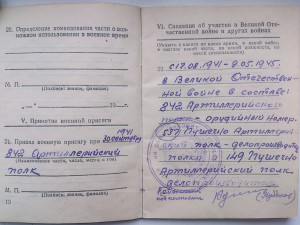 20. Определение командования части о возможном использовании в военное время
М. П.
(Подпись, звание, фамилия)
М. П.
(Подпись, звание, фамилия)
V. Принятие военной присяги
21. Принял военную присягу при 1941
30 сентября
842 Артиллерийский
(Наименование части, месяц и год)
полк
13
VI. Сведения об участии в Великой Отечественной войне и других войнах
22. с 17.08.1941 - 9.05.1945.
в Великой Отечествен-
ной войне в составе:
842 Артиллерийского
полка - орудийный номер.
537 Пушечно Артиллерий-
ский полк - делопроизводитель
полка и 149 Пушечно
Артиллерийский полк
делопроизводитель